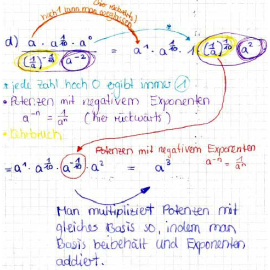 (hier rückwärts)
hoch 1 kann man weglassen
d) a · a^1/10 · a^0 / (1/a)^-1/10 · a^-2 = a^1 · a^1/10 · 1 · (1/a)^1/10 · a^2
* jede Zahl hoch 0 ergibt immer 1
• Potenzen mit negativem Exponenten
a^-n = 1/a^n (hier rückwärts)
Potenzen mit negativem Exponenten
= a^1 · a^1/10 · a^-1/10 · a^2 = a^3 a^-n = 1/a^n
Man multipliziert Potenzen mit
gleicher Basis so, indem man
Basis beibehält und Exponenten
addiert.